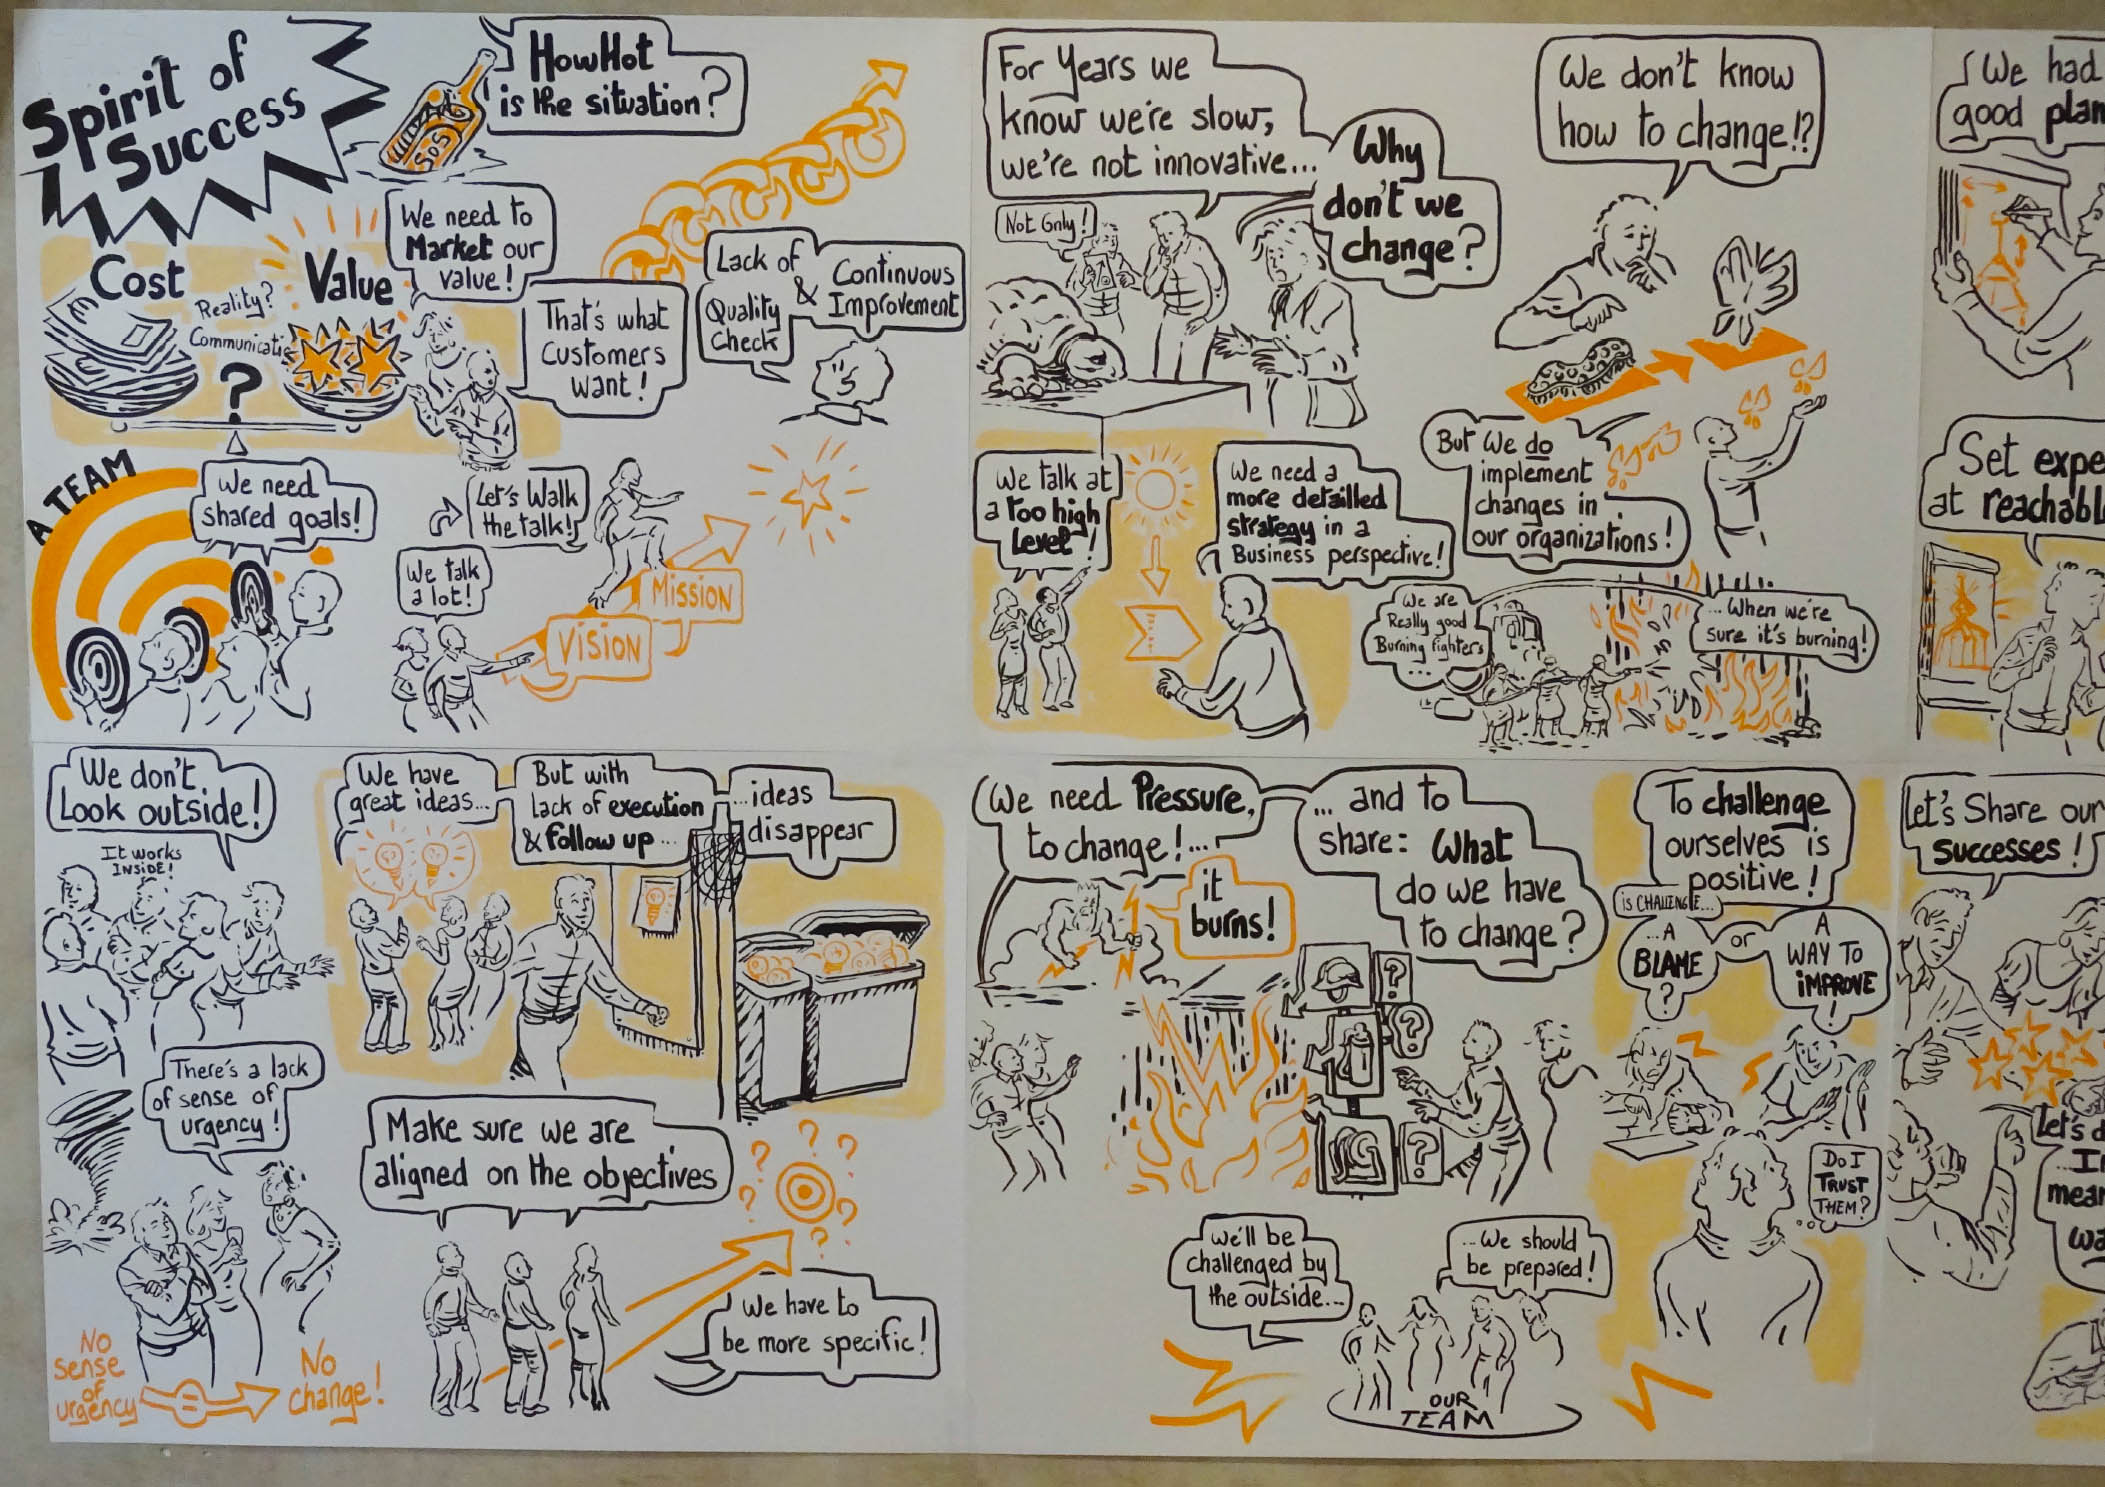 Spirit of
Success
SOS
HowHot
is the situation?
Cost
Reality?
Communicati
?
Value
We need to
Market our
value!
That's what
Customers
want!
Lack of
Quality
Check
&
Continuous
Improvement
A TEAM
We need
shared goals!
We talk
a lot!
Let's Walk
the talk!
VISION
MISSION
For Years we
know we're slow,
we're not innovative...
Not Only!
Why
don't we
change?
We don't know
how to change!?
We talk at
a too high
Level!
We need a
more detailled
strategy in a
Business perspective!
But We do
implement
changes in
our organizations!
We are
Really good
Burning fighters
...
...When we're
sure it's burning!
We had
good plan
Set expe
at reachabl
We don't
Look outside!
It works
INSIDE!
There's a lack
of sense of
urgency!
No
sense
of
urgency
=
No
change!
We have
great ideas...
But with
lack of execution
& follow up...
...ideas
disappear
Make sure we are
aligned on the objectives
? ? ? ? ? ?
We have to
be more specific!
We need Pressure,
to change!...
it
burns!
... and to
share: What
do we have
to change?
?
?
?
To challenge
ourselves is
positive!
IS CHALLENGE...
...A
BLAME
?
or
A
WAY TO
iMPROVE
!
Do I
TRUST
THEM?
We'll be
challenged by
the outside...
...We should
be prepared!
OUR
TEAM
Let's Share our
successes!
Let's d
...I
mean
wa